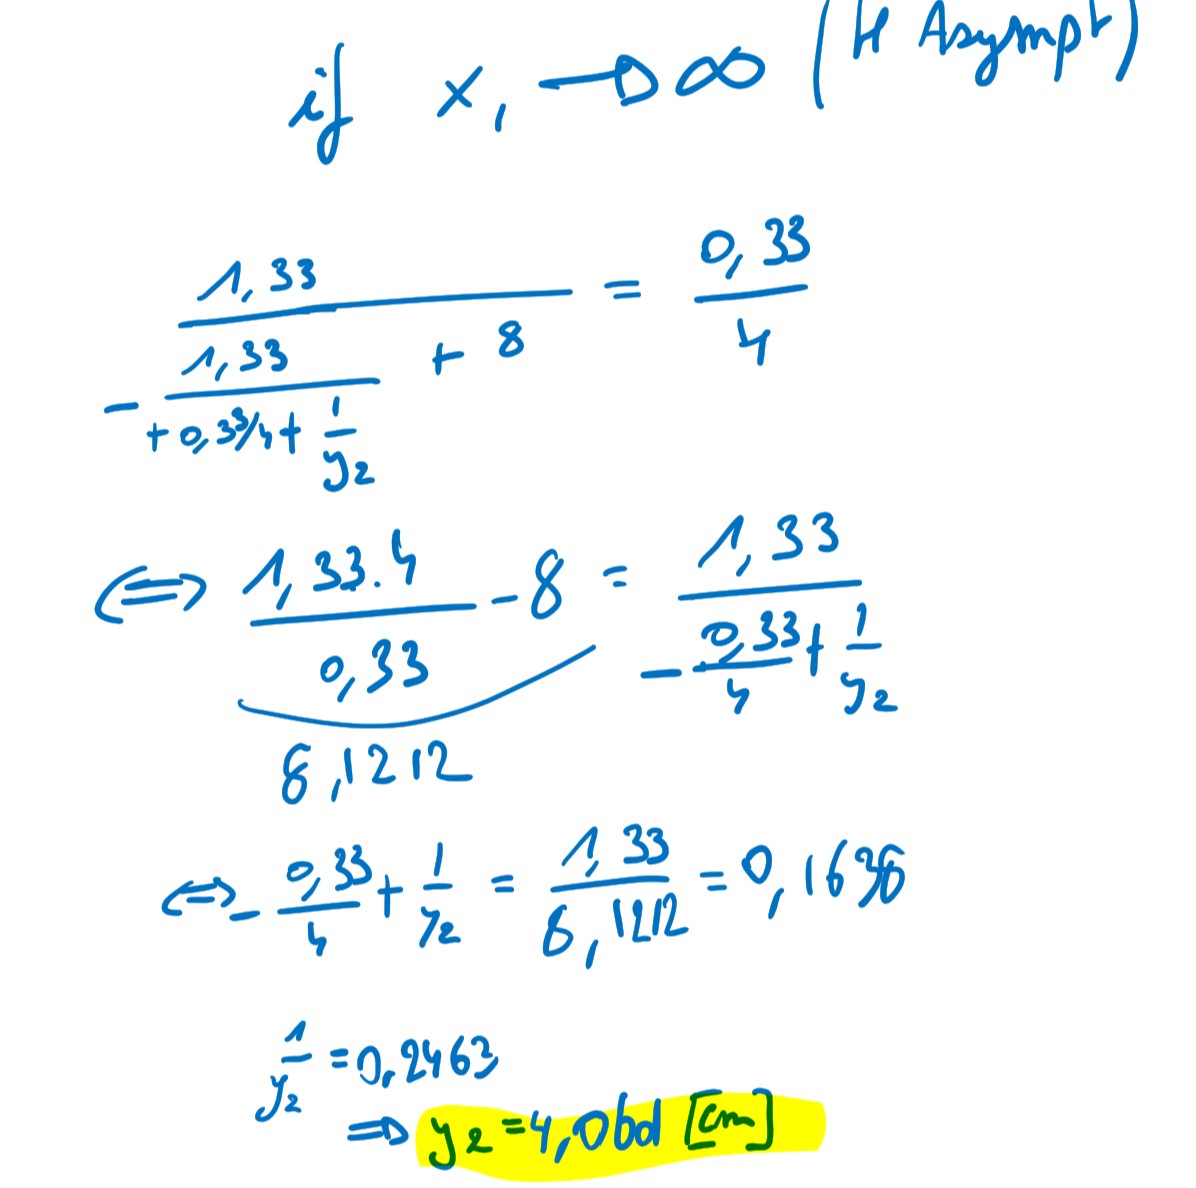 if x₁ → ∞ (H Asympt)
1,33 / (- 1,33 / (+ 0,33/4 + 1/y₂) + 8) = 0,33 / 4
⇔ 1,33.4 / 0,33 - 8 = 1,33 / (- 0,33/4 + 1/y₂)
8,1212
⇔ - 0,33/4 + 1/y₂ = 1,33 / 8,1212 = 0,1638
1/y₂ = 0,2463
⇒ y₂ = 4,06 [cm]